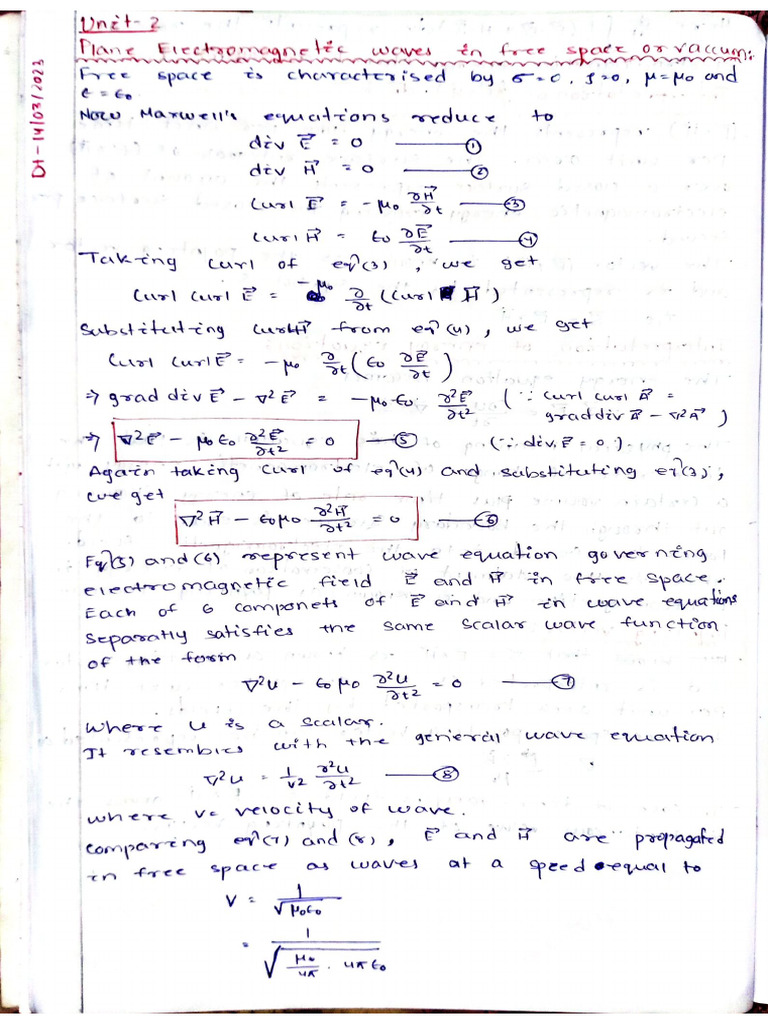 Unit-2
Plane Electromagnetic waves in free space or vaccum:
Dt-14/03/2023
Free space is characterised by σ=0, ρ=0, μ=μ₀ and
ε=ε₀
Now Maxwell's equations reduce to
div E⃗ = 0 —— ①
div H⃗ = 0 —— ②
Curl E⃗ = -μ₀ ∂H⃗/∂t —— ③
Curl H⃗ = ε₀ ∂E⃗/∂t —— ④
Taking curl of eqⁿ(3), we get
Curl Curl E⃗ = -μ₀ ∂/∂t (Curl H⃗)
Substituting curl H⃗ from eqⁿ(4), we get
Curl Curl E⃗ = -μ₀ ∂/∂t (ε₀ ∂E⃗/∂t)
⇒ grad div E⃗ - ∇²E⃗ = -μ₀ε₀ ∂²E⃗/∂t² (∵ curl curl A⃗ =
grad div A⃗ - ∇²A⃗)
⇒ ∇²E⃗ - μ₀ε₀ ∂²E⃗/∂t² = 0 —— ⑤ (∵ div E⃗ = 0)
Again taking curl of eqⁿ(4) and substituting eqⁿ(3),
we get
∇²H⃗ - ε₀μ₀ ∂²H⃗/∂t² = 0 —— ⑥
Eqⁿ(5) and (6) represent wave equation governing
electromagnetic field E⃗ and H⃗ in free space.
Each of 6 componets of E⃗ and H⃗ in wave equations
Separatly satisfies the same scalar wave function
of the form
∇²u - ε₀μ₀ ∂²u/∂t² = 0 —— ⑦
Where u is a scalar.
It resembles with the general wave equation
∇²u = 1/v² ∂²u/∂t² —— ⑧
where v= velocity of wave.
Comparing eqⁿ(7) and (8), E⃗ and H⃗ are propagated
in free space as waves at a speed equal to
V = 1/√μ₀ε₀
= 1/√(μ₀/4π · 4πε₀)